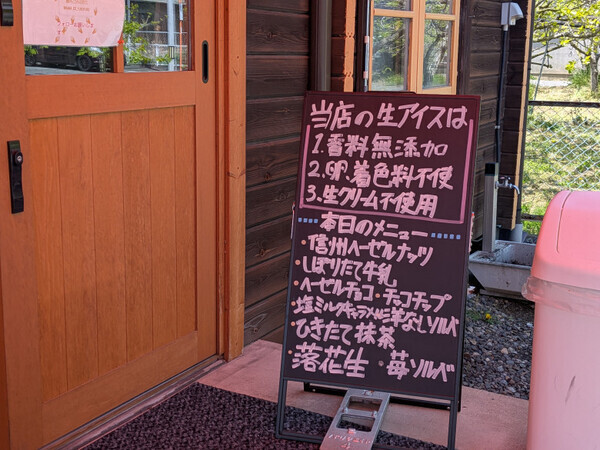 当店の生アイスは
1.香料無添加
2.卵.着色料不使
3.生クリーム不使用
本日のメニュー
・信州ヘーゼルナッツ
・しぼりたて牛乳
・ヘーゼルチョコ・チョコチップ
・塩ミルクキャラメル・洋なしソルベ
・ひきたて抹茶
・落花生・苺ソルベ